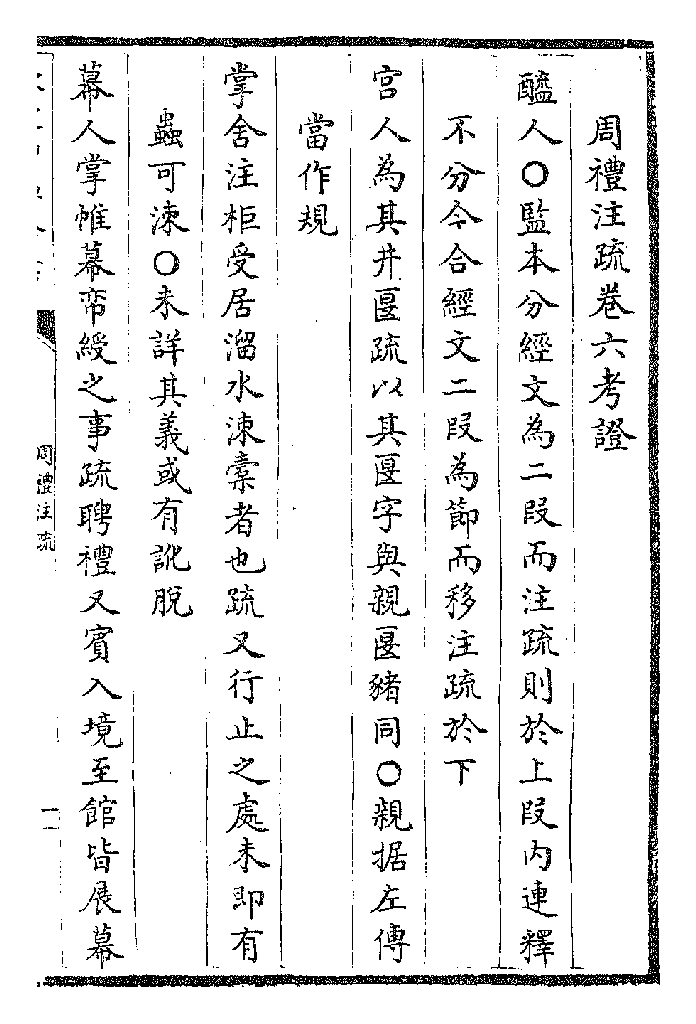 周禮注疏卷六考證
醯人○監本分經文為二段而注疏則於上段内連釋
不分今合經文二段為節而移注疏於下
宫人為其井匽疏以其匽字與親匽豬同○親据左傳
當作規
掌舍注柜受居溜水涑橐者也疏又行止之處未即有
蟲可涑○未詳其義或有訛脫
幕人掌帷幕帟綬之事疏聘禮又賓入境至館皆展幕
周禮注疏
一